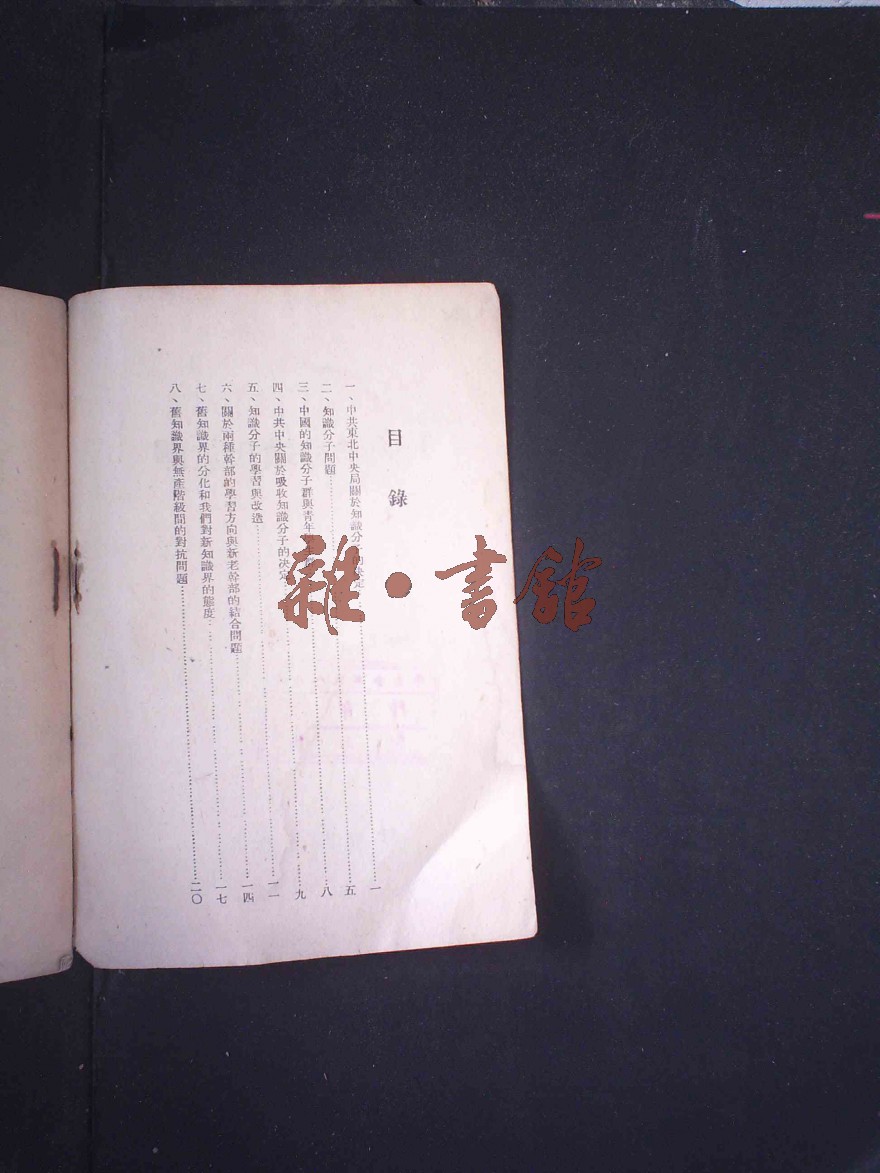 目錄
一、中共東北中央局關於知識分子的決定……一
二、知識分子問題……五
三、中國的知識分子群與青年……八
四、中共中央關於吸收知識分子的決定……九
五、知識分子的學習與改造……一二
六、關於兩種幹部的學習方向與新老幹部的結合問題……一四
七、舊知識界的分化和我們對新知識界的態度……一七
八、舊知識界與無產階級間的對抗問題……二〇
雜·書館